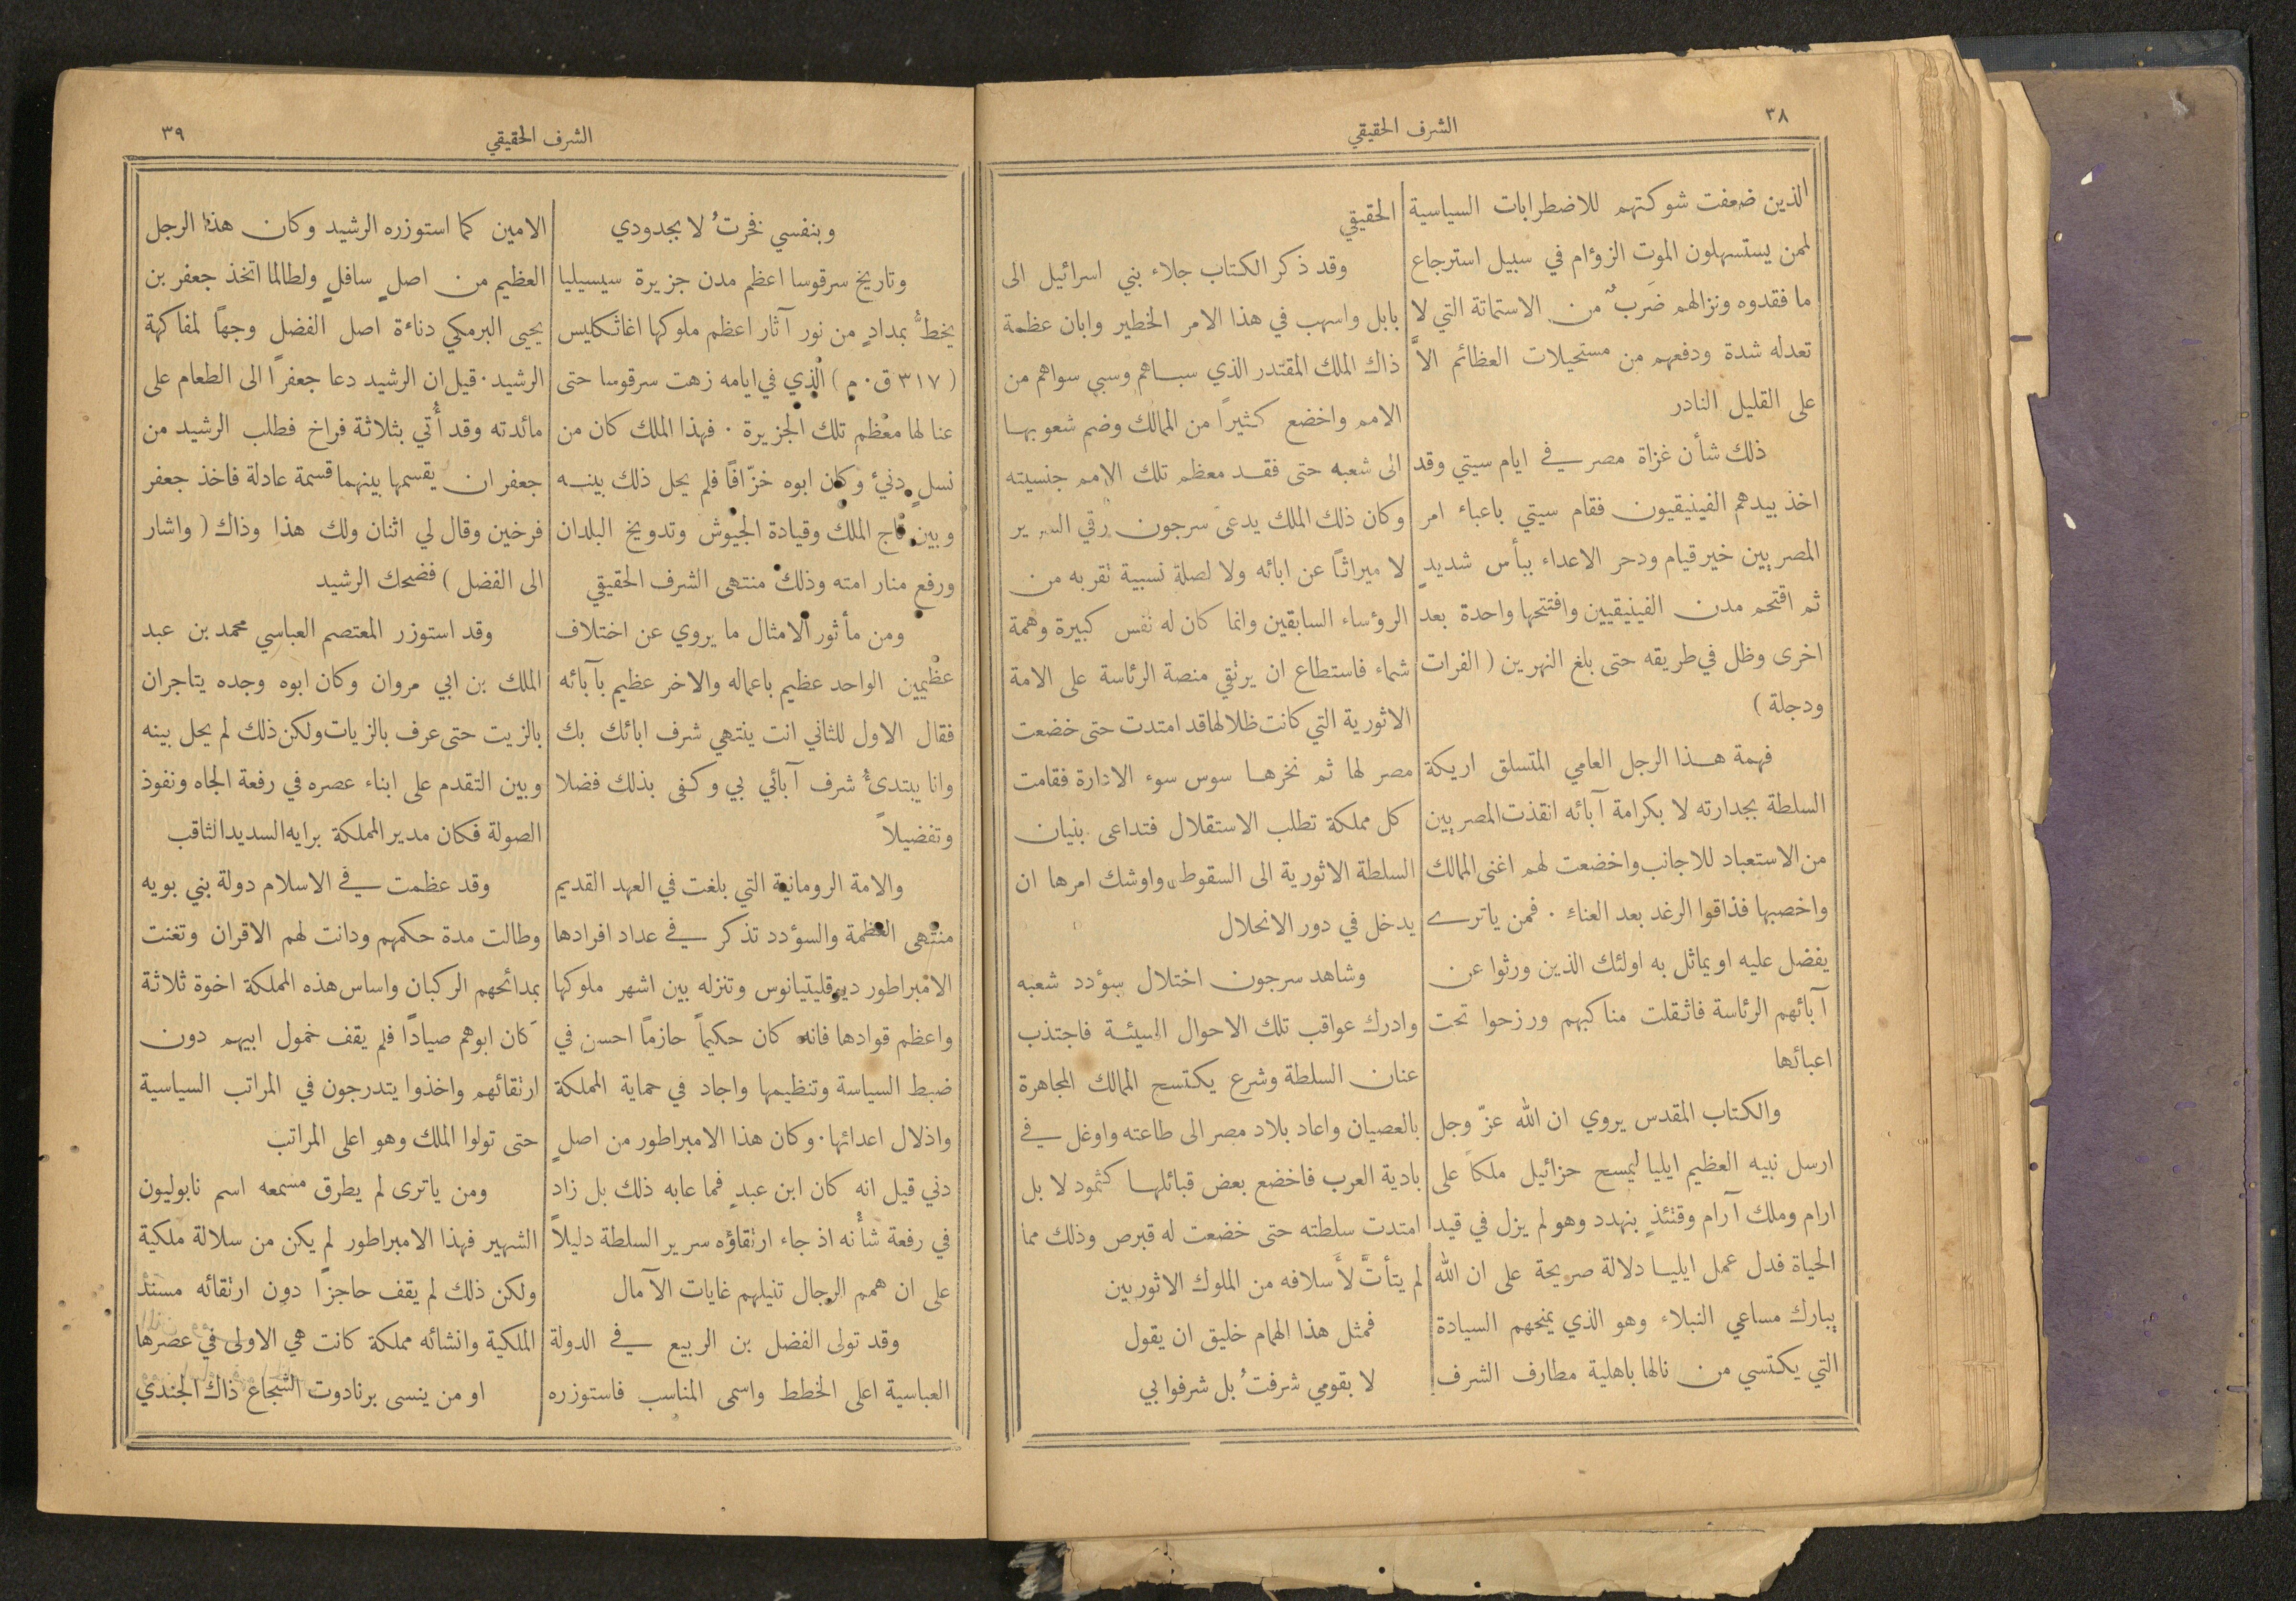 ٣٨
الشرف الحقيقي
الذين ضعفت شوكتهم للاضطرابات السياسية
لممن يستسهلون الموت الزوءام في سبيل استرجاع
ما فقدوه ونزالهم ضَربٌ من الاستماتة التي لا
تعدله شدة ودفعهم من مستحيلات العظائم الاَّ
على القليل النادر
ذلك شأن غزاة مصر في ايام سيتي وقد
اخذ بيدهم الفينيقيون فقام سيتي باعباء امر
المصريين خير قيام ودحر الاعداء ببأس شديدٍ
ثم اقتحم مدن الفينيقيين وافتتحها واحدة بعد
اخرى وظل في طريقه حتى بلغ النهرين ( الفرات
ودجلة )
فهمة هذا الرجل العامي المتسلق اريكة
السلطة بجدارته لا بكرامة آبائه انقذت المصريين
من الاستعباد للاجانب واخضعت لهم اغنى الممالك
واخصبها فذاقوا الرغد بعد العناء ٠ فمن ياترى
يفضل عليه او يماثل به اولئك الذين ورثوا عن
آبائهم الرئاسة فاثقلت مناكبهم ورزحوا تحت
اعبائها
والكتاب المقدس يروي ان الله عزّ وجل
ارسل نبيه العظيم ايليا ليمسح حزائيل ملكاً على
ارام وملك آرام وقتئذٍ بنهدد وهو لم يزل في قيد
الحياة فدل عمل ايليا دلالة صريحة على ان الله
يبارك مساعي النبلاء وهو الذي يمنحهم السيادة
التي يكتسي من نالها باهلية مطارف الشرف
الحقيقي
وقد ذكر الكتاب جلاء بني اسرائيل الى
بابل واسهب في هذا الامر الخطير وابان عظمة
ذاك الملك المقتدر الذي سباهم وسبى سواهم من
الامم واخضع كثيراً من الممالك وضم شعوبها
الى شعبه حتى فقد معظم تلك الامم جنسيته
وكان ذلك الملك يدعى سرجون رقي السرير
لا ميراثاً عن ابائه ولا لصلة نسبية تقربه من
الرؤساء السابقين وانما كان له نفس كبيرة وهمة
شماء فاستطاع ان يرتقي منصة الرئاسة على الامة
الاثورية التي كانت ظلالها قد امتدت حتى خضعت
مصر لها ثم نخرها سوس سوء الادارة فقامت
كل مملكة تطلب الاستقلال فتداعى بنيان
السلطة الاثورية الى السقوط واوشك امرها ان
يدخل في دور الانحلال
وشاهد سرجون اختلال سؤدد شعبه
وادرك عواقب تلك الاحوال السيئة فاجتذب
عنان السلطة وشرع يكتسح الممالك المجاهرة
بالعصيان واعاد بلاد مصر الى طاعته واوغل في
بادية العرب فاخضع بعض قبائلها كثمود لا بل
امتدت سلطته حتى خضعت له قبرص وذلك مما
لم يتأتَّ لأَسلافه من الملوك الاثوريين
فمثل هذا الهمام خليق ان يقول
لا بقومي شرفتُ بل شرفوا بي
٣٩
الشرف الحقيقي
وبنفسي فخرتُ لا بجدودي
وتاريخ سرقوسا اعظم مدن جزيرة سيسيليا
يخطُّ بمدادٍ من نور آثار اعظم ملوكها اغاثكليس
( ٣١٧ ق٠ م ) الذي في ايامه زهت سرقوسا حتى
عنا لها معظم تلك الجزيرة ٠ فهذا الملك كان من
نسلٍ دنيءٍ وكان ابوه خزّافًا فلم يحل ذلك بينه
وبين تاج الملك وقيادة الجيوش وتدويخ البلدان
ورفع منار امته وذلك منتهى الشرف الحقيقي
ومن مأثور الامثال ما يروي عن اختلاف
عظيمين الواحد عظيم باعماله والاخر عظيم بآبائه
فقال الاول للثاني انت ينتهي شرف ابائك بك
وانا يبتدئُ شرف آبائي بي وكفى بذلك فضلا
وتفضيلاً
والامة الرومانية التي بلغت في العهد القديم
منتهى العظمة والسؤدد تذكر في عداد افرادها
الامبراطور ديوقليتيانوس وتنزله بين اشهر ملوكها
واعظم قوادها فانه كان حكيماً حازمًا احسن في
ضبط السياسة وتنظيمها واجاد في حماية المملكة
واذلال اعدائها٠ وكان هذا الامبراطور من اصلٍ
دني قيل انه كان ابن عبدٍ فما عابه ذلك بل زاد
في رفعة شأنه اذ جاء ارتقاؤه سرير السلطة دليلاً
على ان همم الرجال تنيلهم غايات الآمال
وقد تولى الفضل بن الربيع في الدولة
العباسية اعلى الخطط واسمى المناسب فاستوزره
الامين كما استوزره الرشيد وكان هذا الرجل
العظيم من اصلٍ سافلٍ ولطالما اتخذ جعفر بن
يحيى البرمكي دناءة اصل الفضل وجهاً لمفاكهة
الرشيد٠ قيل ان الرشيد دعا جعفراً الى الطعام على
مائدته وقد أُتي بثلاثة فراخ فطلب الرشيد من
جعفر ان يقسمها بينهما قسمة عادلة فاخذ جعفر
فرخين وقال لي اثنان ولك هذا وذاك ( واشار
الى الفضل ) فضحك الرشيد
وقد استوزر المعتصم العباسي محمد بن عبد
الملك بن ابي مروان وكان ابوه وجده يتاجران
بالزيت حتى عرف بالزيات ولكن ذلك لم يحل بينه
وبين التقدم على ابناء عصره في رفعة الجاه ونفوذ
الصولة فكان مدير المملكة برايه السديد الثاقب
وقد عظمت في الاسلام دولة بني بويه
وطالت مدة حكمهم ودانت لهم الاقران وتغنت
بمدائحهم الركبان واساس هذه المملكة اخوة ثلاثة
كان ابوهم صيادًا فلم يقف خمول ابيهم دون
ارتقائهم واخذوا يتدرجون في المراتب السياسية
حتى تولوا الملك وهو اعلى المراتب
ومن ياترى لم يطرق مسمعه اسم نابوليون
الشهير فهذا الامبراطور لم يكن من سلالة ملكية
ولكن ذلك لم يقف حاجزاً دون ارتقائه مسند
الملكية وانشائه مملكة كانت هي الاولى في عصرها
او من ينسى برنادوت الشجاع ذاك الجندي